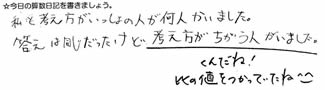 ☆今日の算数日記を書きましょう。
私と考え方がいっしょの人が何人かいました。
答えは同じだったけど考え方がちがう人がいました。
くんだね!
比の値をつかっていたね^^